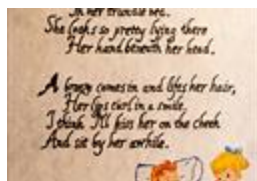 In her trundle bed.
She looks so pretty lying there
Her hand beneath her head.
A breeze comes in and lifts her hair,
Her lips curl in a smile,
I think I'll kiss her on the cheek
And sit by her awhile.